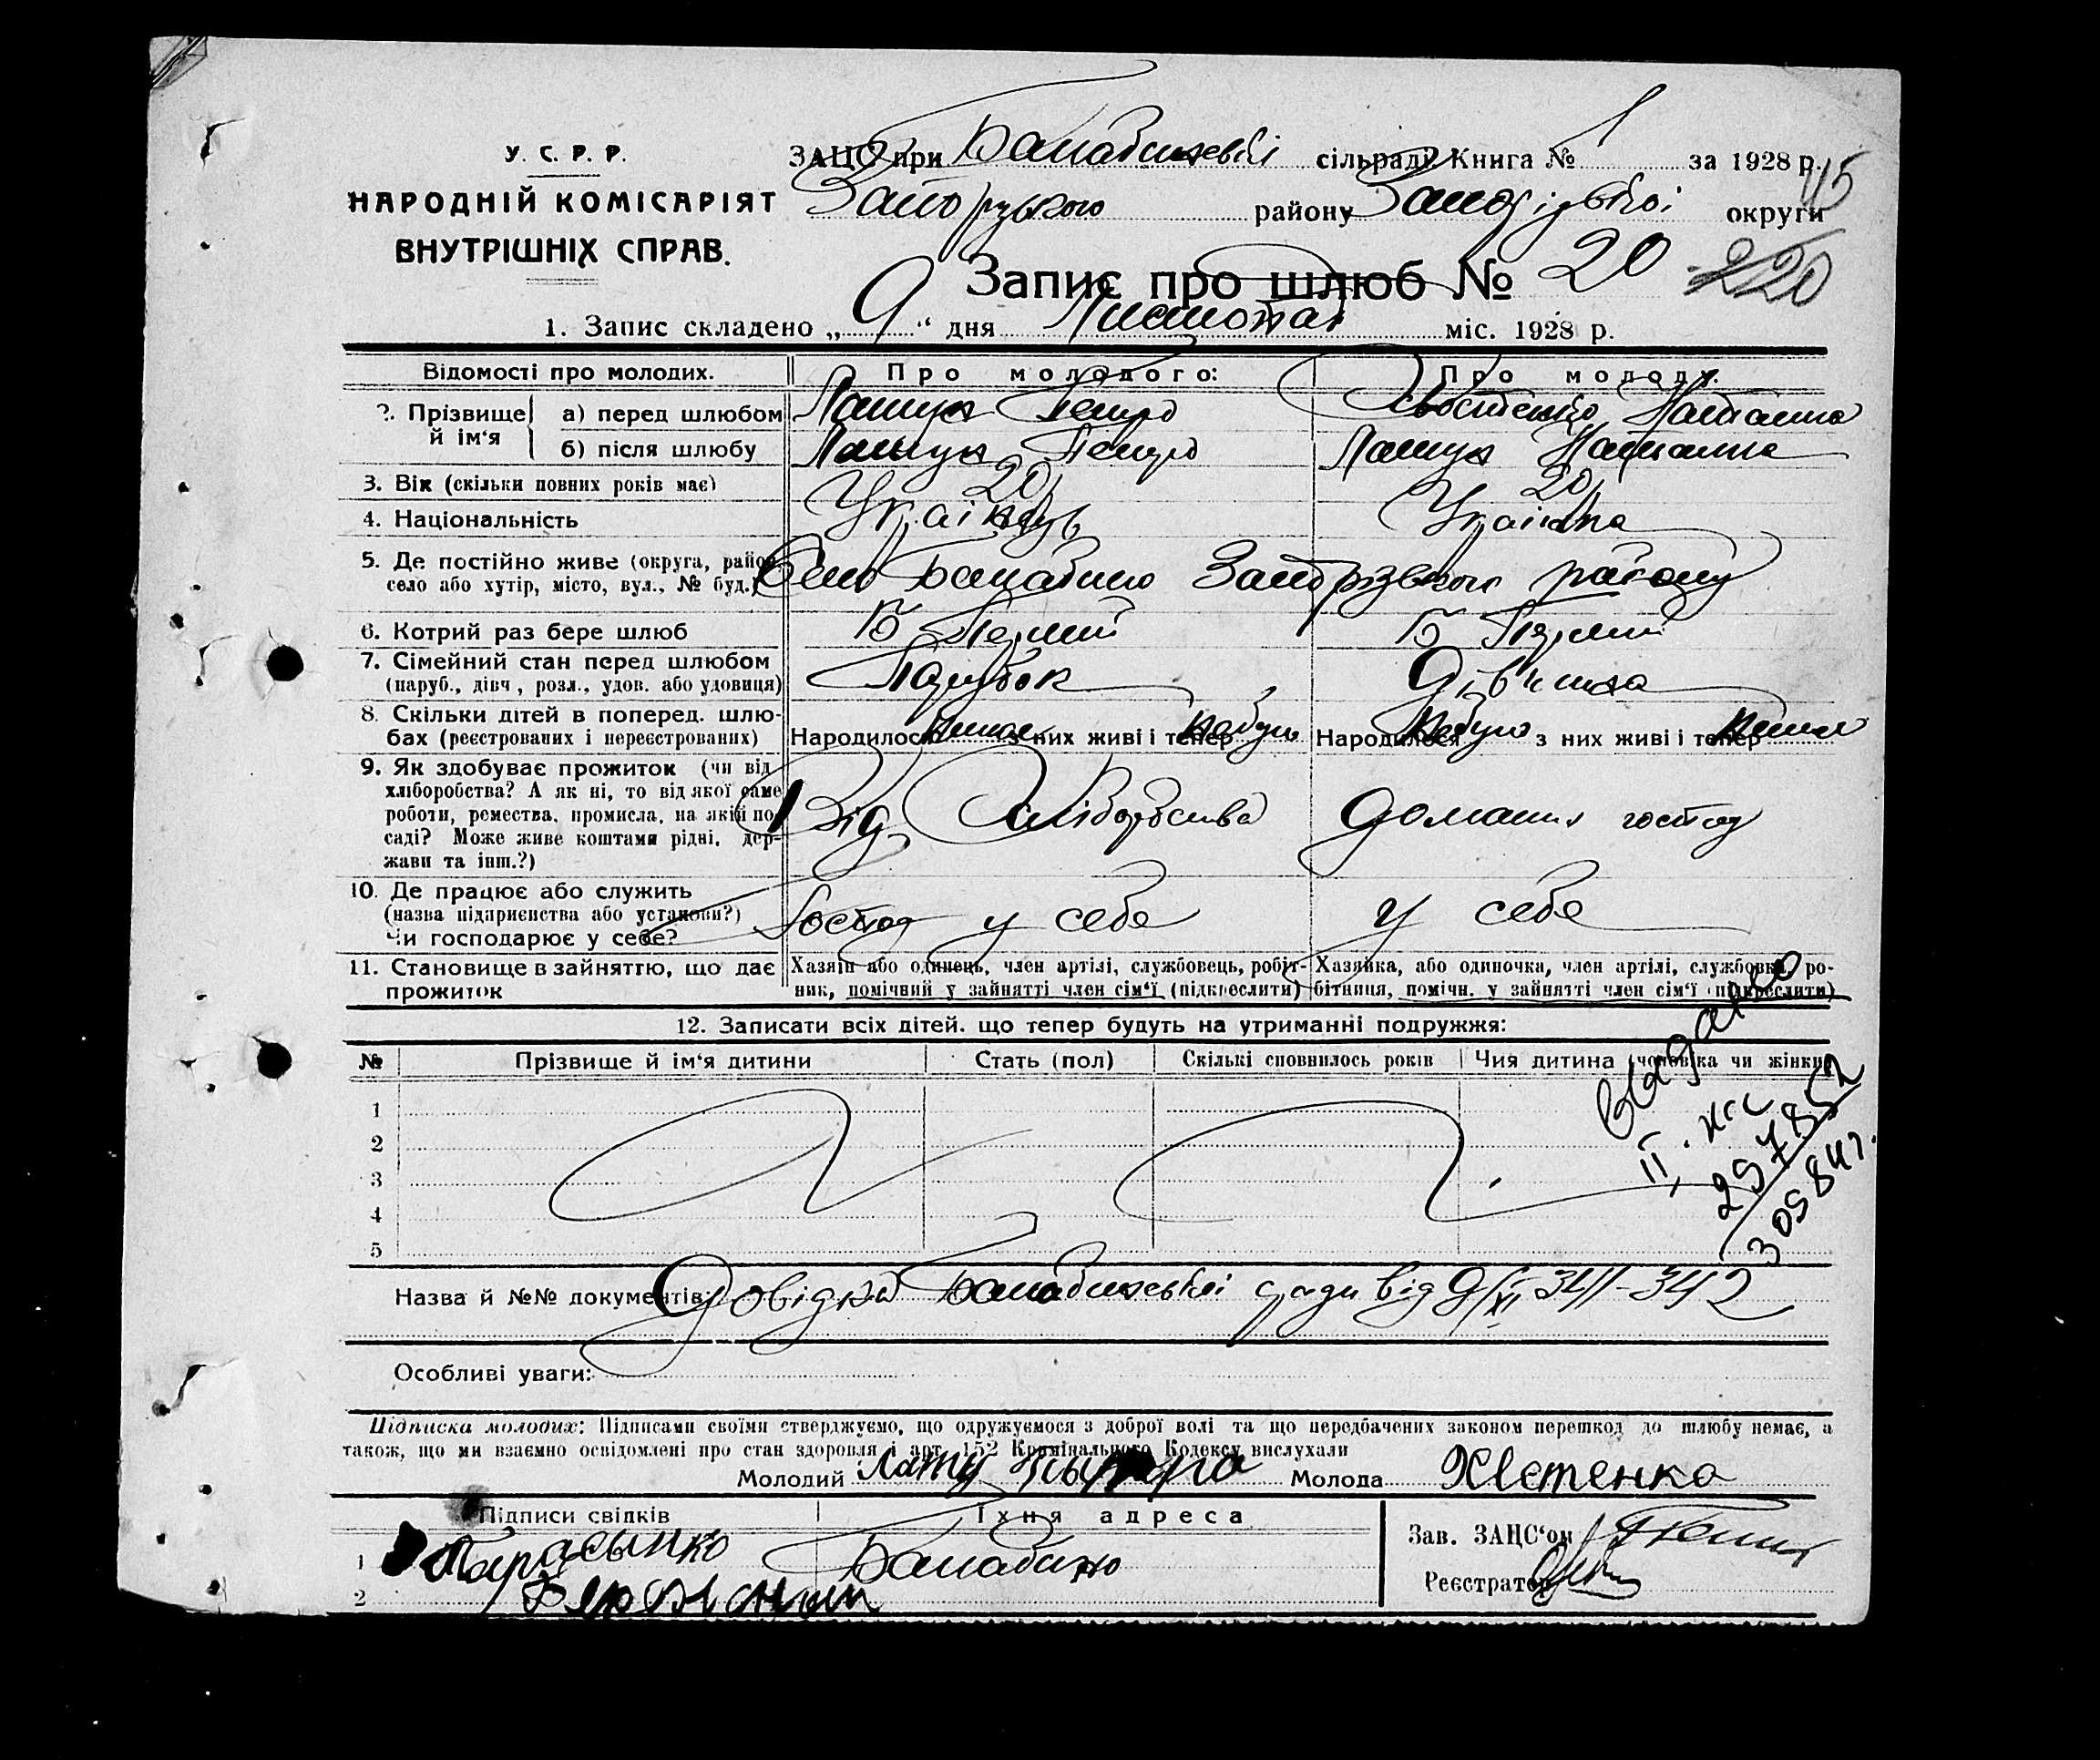 У. С. Р. Р.
НАРОДНІЙ КОМІСАРІЯТ
ВНУТРІШНІХ СПРАВ.
ЗАЦС при Балабинській сільраді Книга № 1 за 1928 р.
Запорізького району Запорізької округи
115
Запис про шлюб № 20
220
1. Запис складено „ 9 “ дня Листопад міс. 1928 р.
Відомості про молодих. Про молодого: Про молоду.
2. Прізвище й ім‘я
а) перед шлюбом Лашук Петро Хвостенко Наталка
б) після шлюбу Лашук Петро Лашук Наталка
3. Вік (скільки повних років має) 20 20
4. Національність Українець Українка
5. Де постійно живе (округа, район,
село або хутір, місто, вул., № буд.) Село Балабино Запорізького району
6. Котрий раз бере шлюб В Первий В Первий
7. Сімейний стан перед шлюбом Парубок Дівчина
(паруб., дівч, розл., удов. або удовиця)
8. Скільки дітей в поперед. шлю-
бах (реєстрованих і нереєстрованих) Народилося з них живі і тепер Народилося з них живі і тепер
9. Як здобуває прожиток (чи від
хліборобства? А як ні, то від якої саме
роботи, ремества, промисла, на якій по
саді? Може живе коштами рідні, дер-
жави та інш.?)
Від Хліборобства Домашня господ
10. Де працює або служить
(назва підприємства або установи?)
Чи господарює у себе?
Господ у себе у себе
11. Становище в зайняттю, що дає
прожиток
Хазяїн або одинець, член артілі, службовець, робіт-
ник, помічний у зайнятті член сім‘ї (підкреслити)
Хазяйка, або одиночка, член артілі, службовка, ро-
бітниця, помічн. у зайнятті член сім‘ї (підкреслити)
12. Записати всіх дітей. що тепер будуть на утриманні подружжя:
№ Прізвище й ім‘я дитини Стать (пол) Скількі сповнилось років Чия дитина (чоловіка чи жінки)
1
2
3
4
5
Видано
Назва й №№ документів: Довідки Балабинської ради від 9/XI 341-342
Особливі уваги:
Підписка молодих: Підписами своїми стверджуємо, що одружуємося з доброї волі та що передбачених законом перешкод до шлюбу немає, а
також, що ми взаємно освідомлені про стан здоровля і арт. 152 Кримінального Кодексу вислухали
Молодий Молода Хвстенко
Підписи свідків Їхня адреса
1 Балабино
2
Зав. ЗАЦС‘ом
Реєстратор